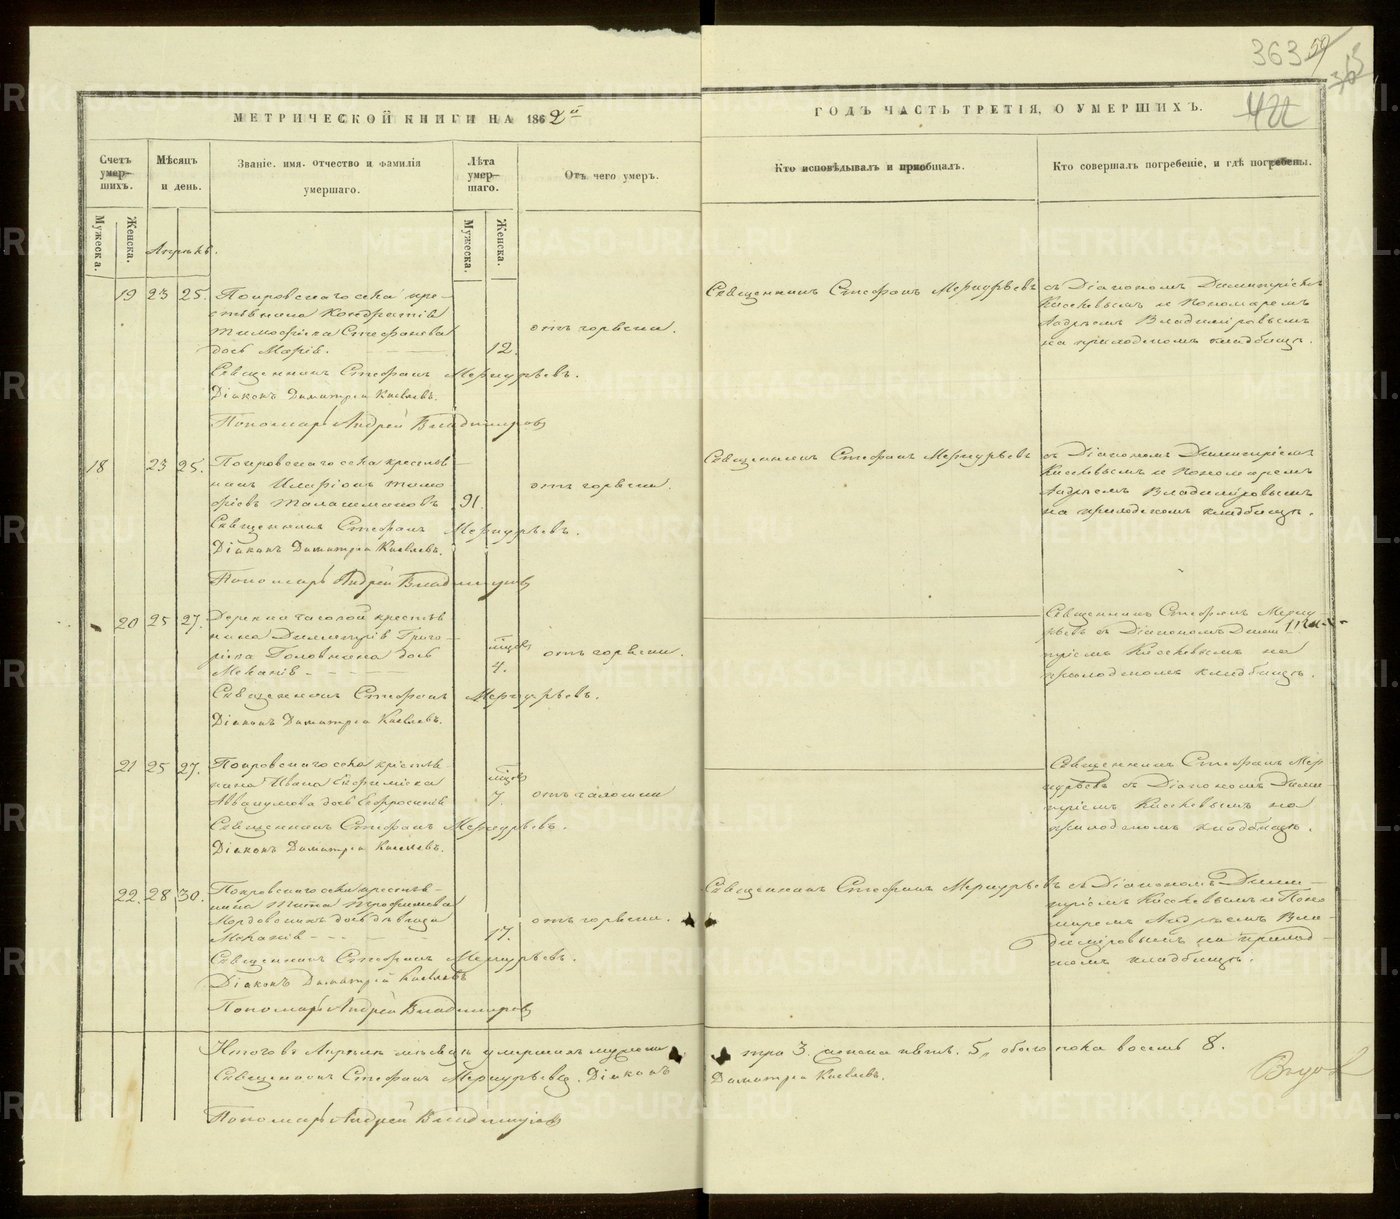 363
МЕТРИЧЕСКОЙ КНИГИ НА 1862й
ГОДЪ ЧАСТЬ ТРЕТІЯ, О УМЕРШИХЪ.
Счетъ умершихъ.
Мѣсяцъ и день.
Званіе. имя. отчество и фамилія умершаго.
Лѣта умершаго.
Отъ чего умеръ.
Кто исповѣдывалъ и пріобщалъ.
Кто совершалъ погребеніе, и гдѣ погребены.
Мужеска.
Женска.
Мужеска.
Женска.
Апрѣль.
19 23 25. Покровскаго села кре-
стьянина Кондратія
Тимофѣева Стефанова
дочь Марія. 12.
отъ горячки.
Священникъ Стефанъ Меркурьевъ
съ Діакономъ Димитріемъ
Киселевымъ и Пономаремъ
Андреемъ Владиміровымъ
на приходскомъ кладбищѣ.
Священникъ Стефанъ Меркурьевъ.
Діаконъ Димитрій Киселевъ.
Пономарь Андрей Владимировъ
18 23 25. Покровскаго села крестья-
нинъ Иларіонъ Тимо
фѣевъ 91.
отъ горячки.
Священникъ Стефанъ Меркурьевъ
съ Діакономъ Димитріемъ
Киселевымъ и Пономаремъ
Андреемъ Владиміровымъ
на приходскомъ кладбищѣ.
Священникъ Стефанъ Меркурьевъ.
Діаконъ Димитрій Киселевъ.
Пономарь Андрей Владимировъ
20 25 27. Деревни крестья
нина Димитрія Григо-
рьева Головкина дочь
4.
отъ горячки.
Священникъ Стефанъ Мерку-
рьевъ съ Діакономъ Дими
тріемъ Киселевымъ на
приходскомъ кладбищѣ.
Священникъ Стефанъ Меркурьевъ.
Діаконъ Димитрій Киселевъ.
21 25 27. Покровскаго села крестья-
нина Ивана Ефиміева
Аввакумова дочь Евфросинія
7.
Священникъ Стефанъ Мер-
курьевъ съ Діакономъ Дими-
тріемъ Киселевымъ на
приходскомъ кладбищѣ.
Священникъ Стефанъ Меркурьевъ.
Діаконъ Димитрій Киселевъ.
22. 28 30. Покровскаго села крестья-
нина Тита Трофимова
дочь дѣвица
17.
отъ горячки.
Священникъ Стефанъ Меркурьевъ
съ Діакономъ Дими-
тріемъ Киселевымъ и Поно-
маремъ Андреемъ Вла-
диміровымъ на приход-
скомъ кладбищѣ.
Священникъ Стефанъ Меркурьевъ.
Діаконъ Димитрій Киселевъ
Пономарь Андрей Владимировъ
Итого въ Апрѣлѣ мѣсяцѣ умершихъ мужеска
три 3. женска пять. 5, обоего пола восемь 8.
Священникъ Стефанъ Меркурьевъ. Діаконъ
Димитрій Киселевъ.
Пономарь Андрей Владимировъ